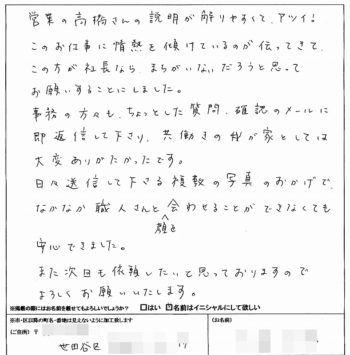 営業の高橋さんの説明が解りやすくて、アツイ!
このお仕事に情熱を傾けているのが伝ってきて、
この方が社長なら、まちがいないだろうと思って
お願いすることにしました。
事務の方々も、ちょっとした質問、確認のメールに
即返信して下さり、共働きの我が家としては
大変ありがたかったです。
日々送信して下さる複数の写真のおかげで、
なかなか職人さんと会わせることができなくても
顔を
安心できました。
また次回も依頼したいと思っておりますので
よろしくお願いいたします。
※掲載の際にはお名前を載せてもよろしいでしょうか? □はい ☑名前はイニシャルにして欲しい
※市・区以降の町名・番地は見えないように加工致します
(ご住所) 〒
(お名前)
世田谷区